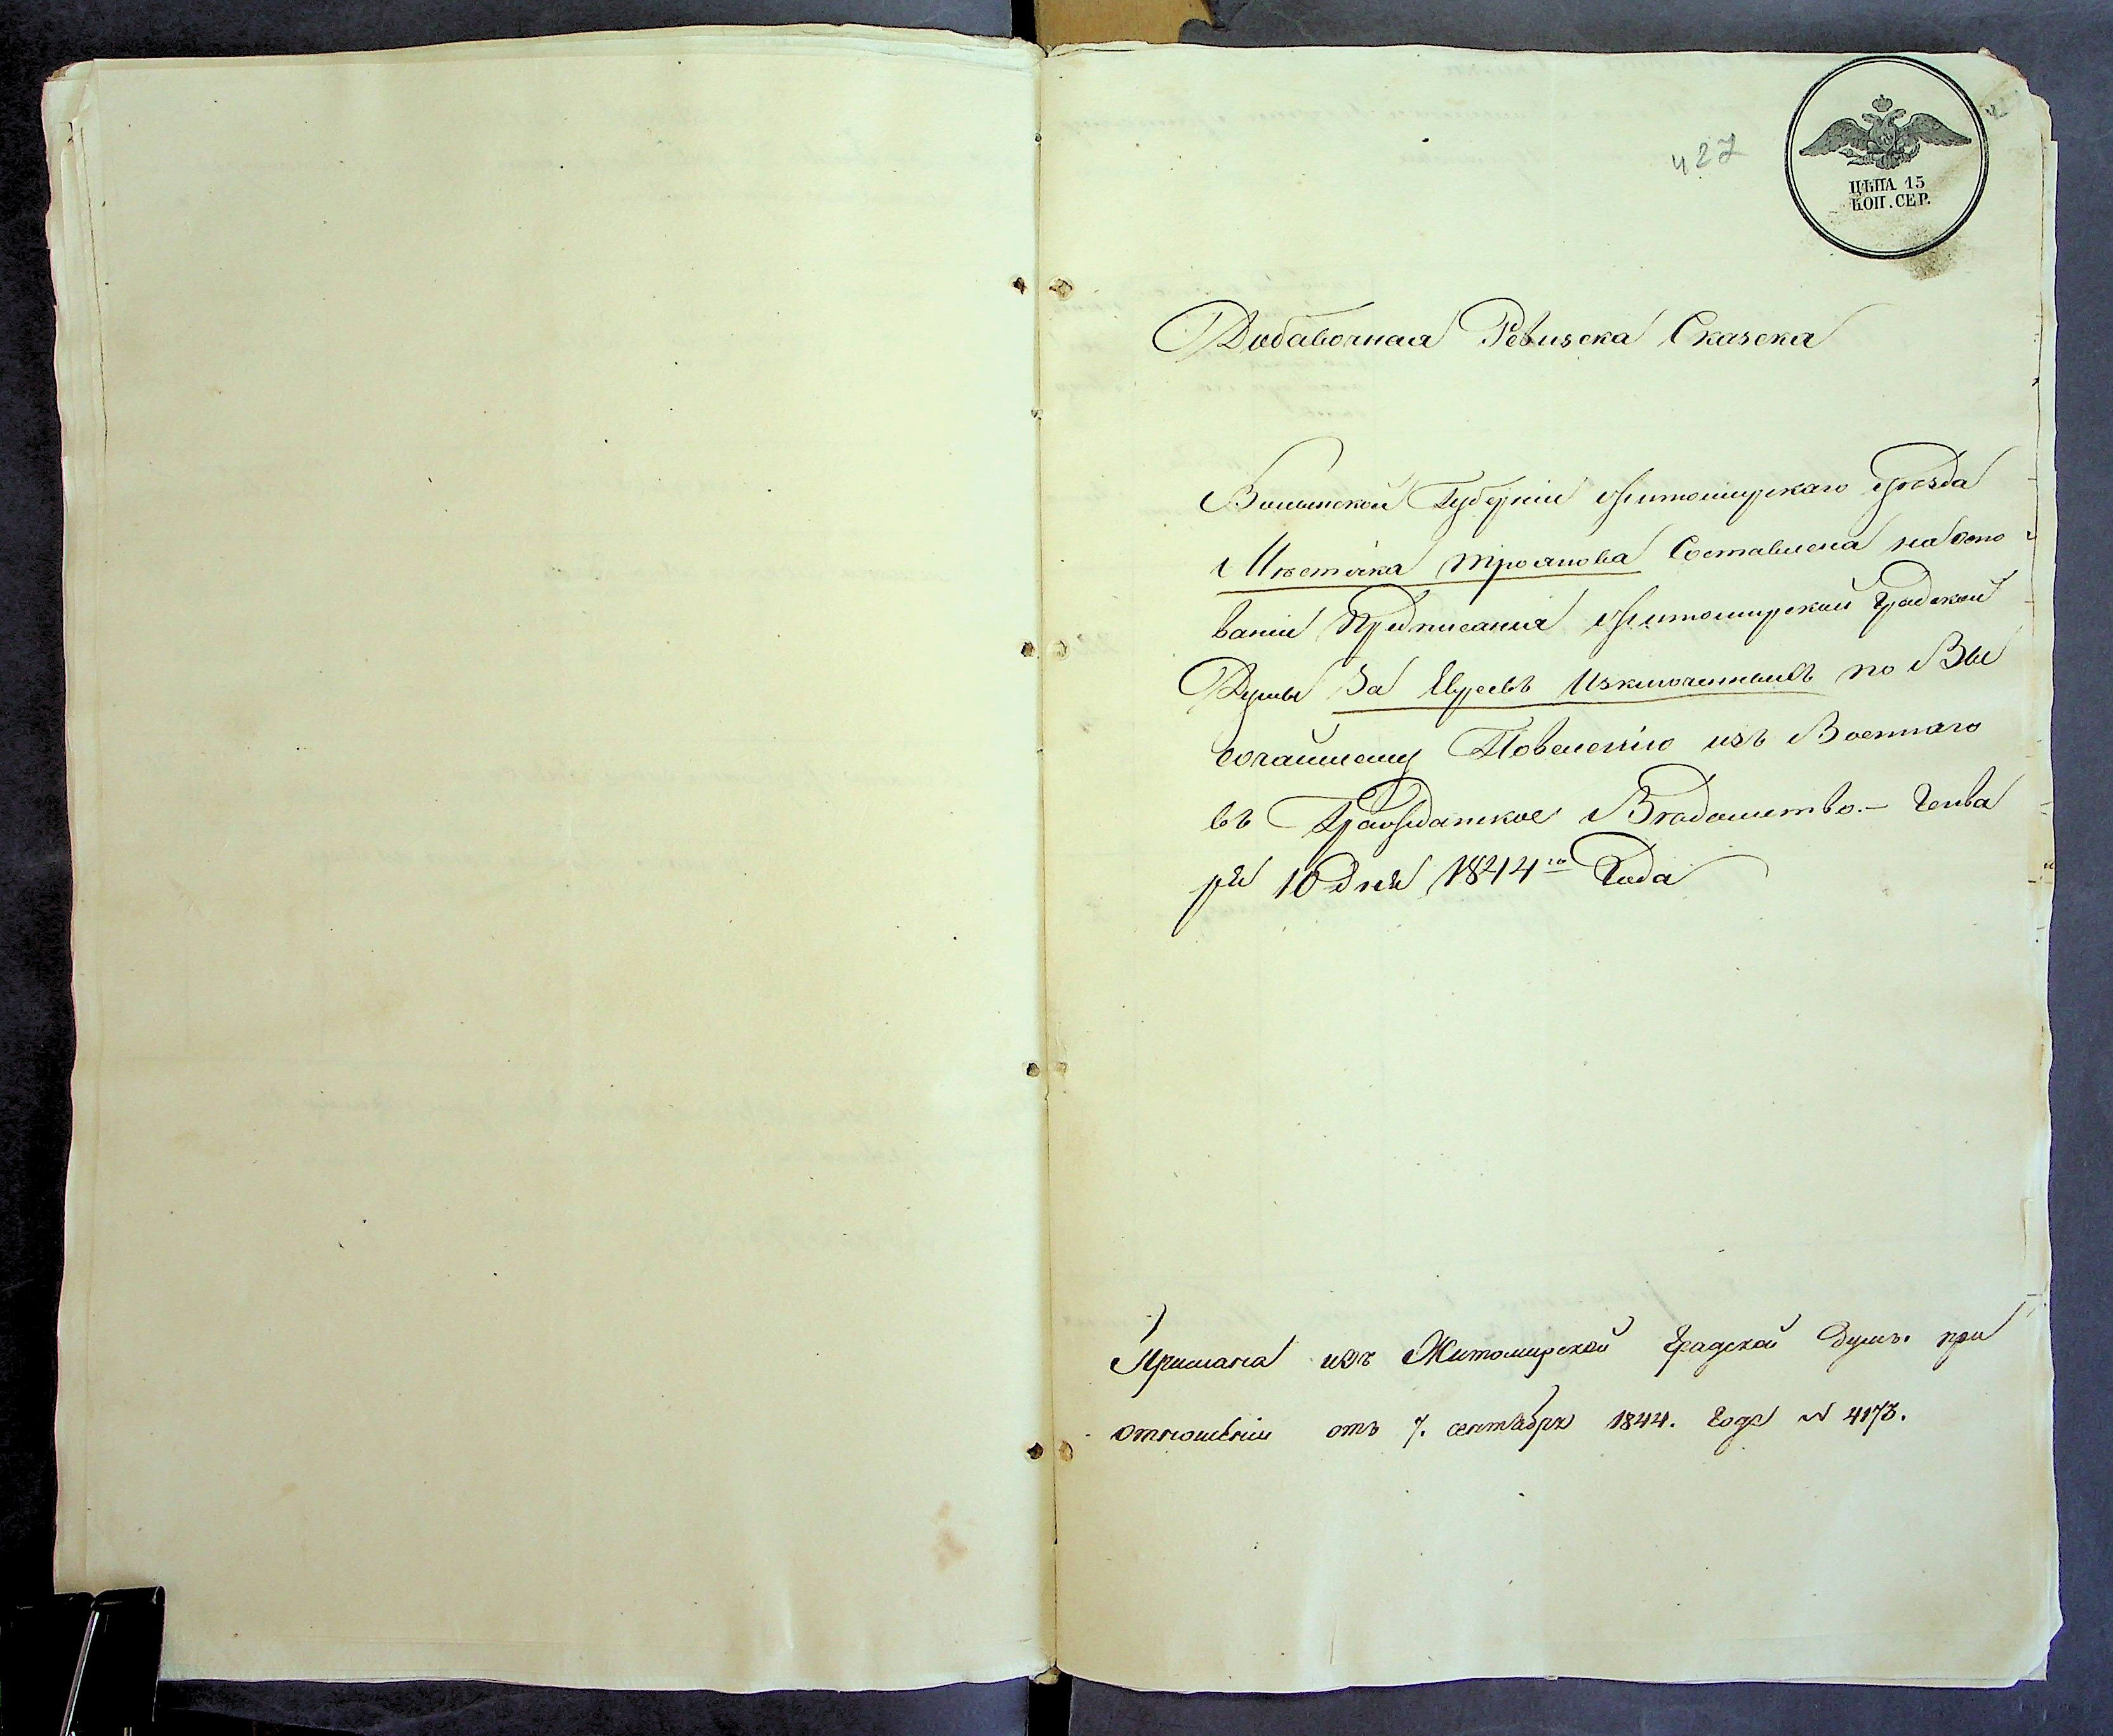 427
ЦѢНА 15
КОП. СЕР.
Добавочная Ревизска Сказска
Волынской Губерніи Житомирскаго Уѣзда
Мѣстечка Троянова Составлена на осно
ваніи Предписанія Житомирской Градской
Думы За Евреевъ Изключенныхъ по Вы
сочайшему Повеленію изъ Военнаго
въ Гражданское Вѣдомство.- Генва
ря 10 Дня 1844го Года
Прислана изъ Житомирской Градской Думы. при
отношеніи отъ 7. сентября 1844. Года № 4173.